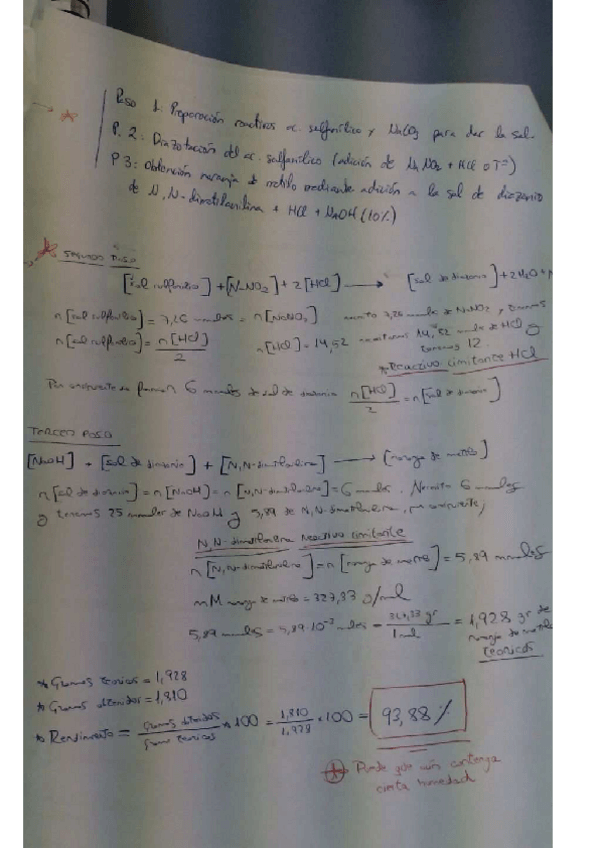 Paso 1: Preparación reactivos ac. sulfanílico y Na2CO3 para dar la sal.
P. 2: Diazotación del ac. sulfanílico (adición de NaNO2 + HCl a Tª)
P 3: Obtención naranja de metilo mediante adición a la sal de diazonio
de N,N-dimetilanilina + HCl + NaOH (10%)
SEGUNDO PASO
[sal sulfanílico] + [NaNO2] + 2[HCl] → [sal de diazonio] + 2H2O +
n[sal sulfanílico] = 7,26 mmoles = n[NaNO2] necesito 7,26 mmoles de NaNO2 y tenemos
n[sal sulfanílico] = n[HCl]/2 n[HCl] = 14,52 necesitamos 14,52 mmoles de HCl y
tenemos 12
*Reactivo limitante HCl
Por consecuente se forman 6 mmoles de sal de diazonio n[HCl]/2 = n[sal de diazonio]
TERCER PASO
[NaOH] + [sal de diazonio] + [N,N-dimetilanilina] → [naranja de metilo]
n[sal de diazonio] = n[NaOH] = n[N,N-dimetilanilina] = 6 mmoles. Necesito 6 mmoles
y tenemos 25 mmoles de NaOH y 5,89 de N,N-dimetilanilina, por consecuente,
N,N-dimetilanilina reactivo limitante
n[N,N-dimetilanilina] = n[naranja de metilo] = 5,89 mmoles
mM naranja de metilo = 327,33 g/mol
5,89 mmoles = 5,89·10⁻³ moles 327,33 gr / 1 mol = 1,928 gr de
naranja de metilo
teóricos
* Gramos teóricos = 1,928
* Gramos obtenidos = 1,810
* Rendimiento = gramos obtenidos/gramos teóricos × 100 = 1,810/1,928 × 100 = 93,88 %
* Puede que aún contenga
cierta humedad